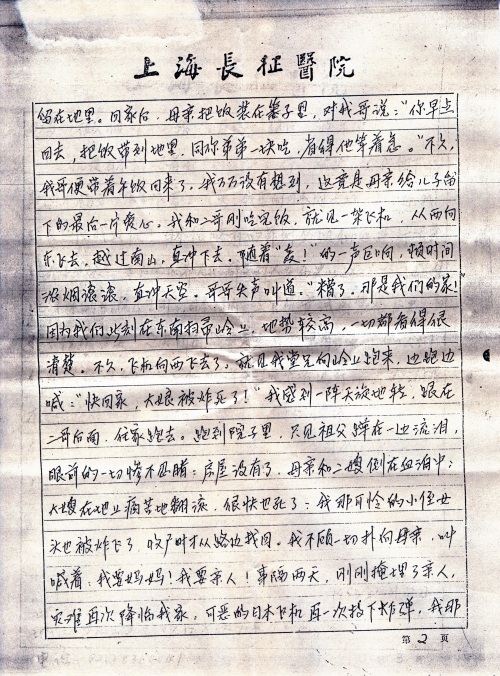 上海長征醫院
留在地里。回家后，母亲把饭装在篮子里，对我哥说：“你早点
回去，把饭带到地里，同你弟弟一块吃，省得他等着急。”不久，
我哥便带着午饭回来了，我万万没有想到，这竟是母亲给儿子留
下的最后一片爱心。我和二哥刚吃完饭，就见一架飞机，从西向
东飞去，越过南山，直冲下去。随着“轰！”的一声巨响，顿时间
浓烟滚滚，直冲天空。哥哥失声叫道：“糟了，那是我们的家！”
因为我们此刻在东南扫帚岭上，地势较高，一切都看得很
清楚。不久，飞机向西飞去了，就见我堂兄向岭上跑来，边跑边
喊：“快回家，大娘被炸死了！”我感到一阵天旋地转，跟在
二哥后面，往家跑去。跑到院子里，只见祖父蹲在一边流泪，
眼前的一切惨不忍睹：房屋没有了，母亲和二嫂倒在血泊中；
大嫂在地上痛苦地翻滚，很快也死了；我那可怜的小侄女
头也被炸飞了，收尸时才从路边找回。我不顾一切扑向母亲，叫
喊着：我要妈妈！我要亲人！事隔两天，刚刚掩埋了亲人，
灾难再次降临我家，可恶的日本飞机再一次投下炸弹，我那
第2页